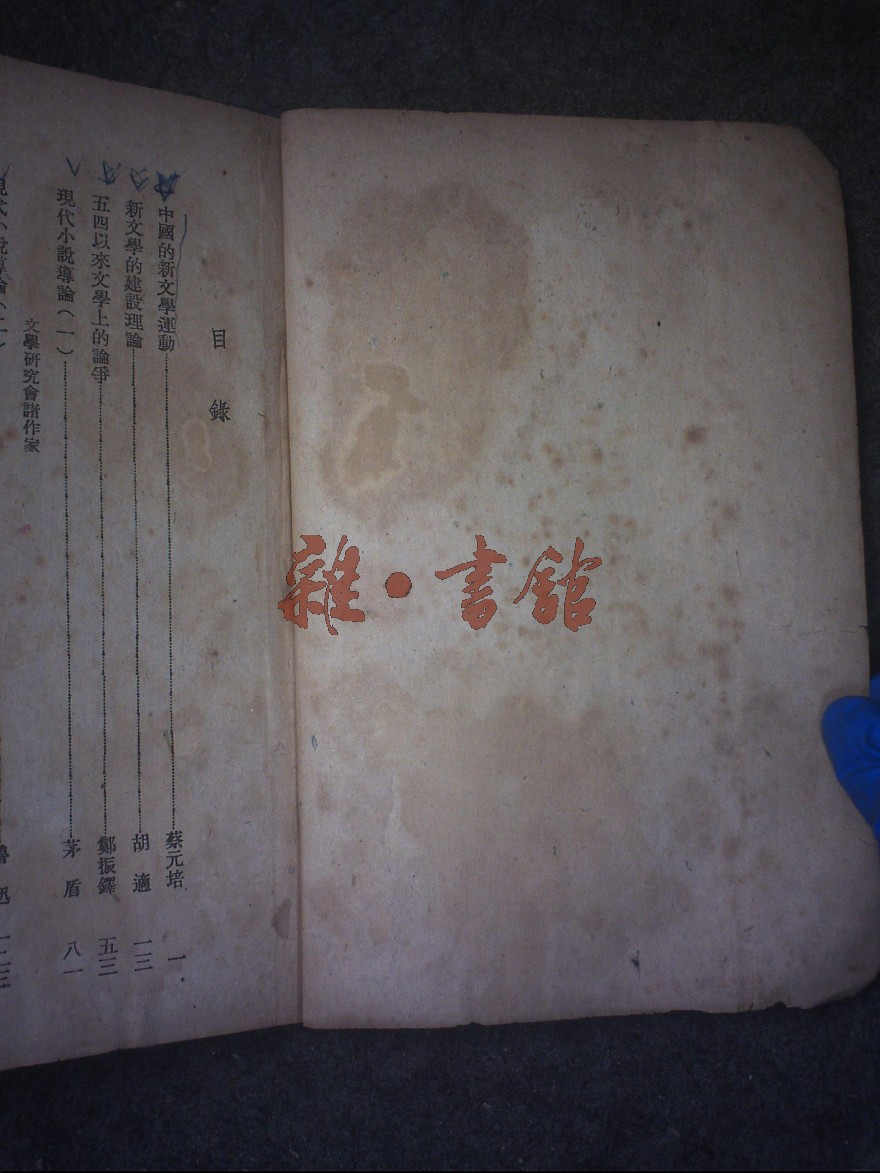 目錄
中國的新文學運動 蔡元培 一
新文學的建設理論 胡適 一三
五四以來文學上的論爭 鄭振鐸 五三
現代小說導論(一) 茅盾 八一
文學研究會諸作家
現代小說導論(二) 魯迅 一二三
雜·書館